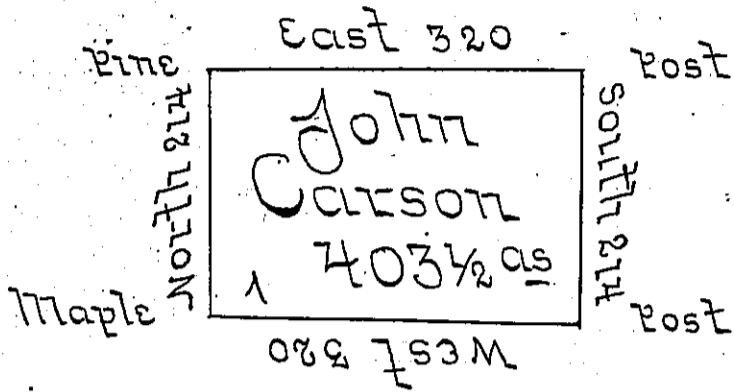 East 320
Pine
Post
North 214
John
Carson
403½ as
1
South 214
Maple
Post
West 320